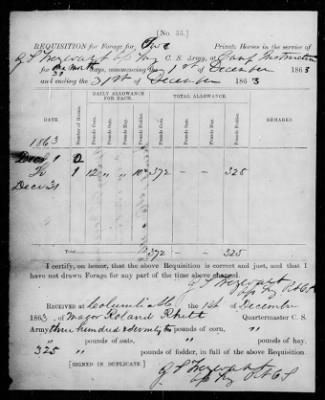 [No. 35.]
REQUISITION for Forage for One Private Horses in the service of
C. S. Army, at Camp Instruction
for one month days, commencing 1st of December 1863
31
and ending the 31st of December 1863
DAILY ALLOWANCE FOR EACH.
TOTAL ALLOWANCE.
Number of Horses.
Pounds Corn.
Pounds Oats.
Pounds Hay.
Pounds Fodder.
REMARKS.
1863
Dec 1
To 1 12 " " 10½ 372 — — 325
Dec 31
Total 372 — 325
I certify, on honor, that the above Requisition is correct and just, and that I
have not drawn Forage for any part of the time above charged.
RECEIVED at Columbia the 1st December
1863, of Major Roland Rhett Quartermaster C. S.
Army, three hundred & seventy two pounds of corn, "
" pounds of oats, " pounds of hay,
325 pounds of fodder, in full of the above Requisition
[SIGNED IN DUPLICATE]